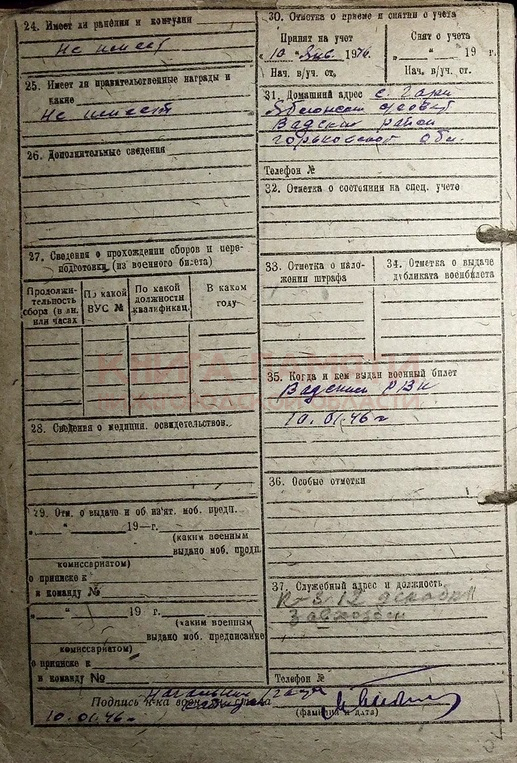 24. Имеет ли ранения и контузии
Не имеет
25. Имеет ли правительственные награды и
какие
Не имеет
26. Дополнительные сведения
27. Сведения о прохождении сборов и пере-
подготовки (из военного билета)
Продолжи-
тельность
сбора (в дн.
или часах
По какой
ВУС №
По какой
должности
квалификац.
В каком
году
28. Сведения о медицин. освидетельствов.
29. Отм. о выдаче и об изъят. моб. предп.
„ “ 19—г.
(каким военным
выдано моб. предп.
комиссариатом)
о приписке к
в команду №
„ “ 19 г.
(каким военным
выдано моб. предписание
комиссариатом)
о приписке к
в команду №
30. Отметка о приеме и снятии с учета
Принят на учет
„10 “ янв. 1946 г.
Нач. в/уч. ст.
Снят с учета
„ “ 19 г.
Нач. в/уч. ст.
31. Домашний адрес с.
Вадский район
Горьковской обл.
Телефон №
32. Отметка о состоянии на спец. учете
33. Отметка о нало-
жении штрафа
34. Отметка о выдаче
дубликата военбилета
35. Когда и кем выдан военный билет
Вадским РВК
10.01.46 г
КНИГА ПАМЯТИ
36. Особые отметки
37. Служебный адрес и должность
Завхозом
Телефон №
Подпись н-ка военно-уч. стола
Начальник
(фамилия и дата)
10.01.46 г